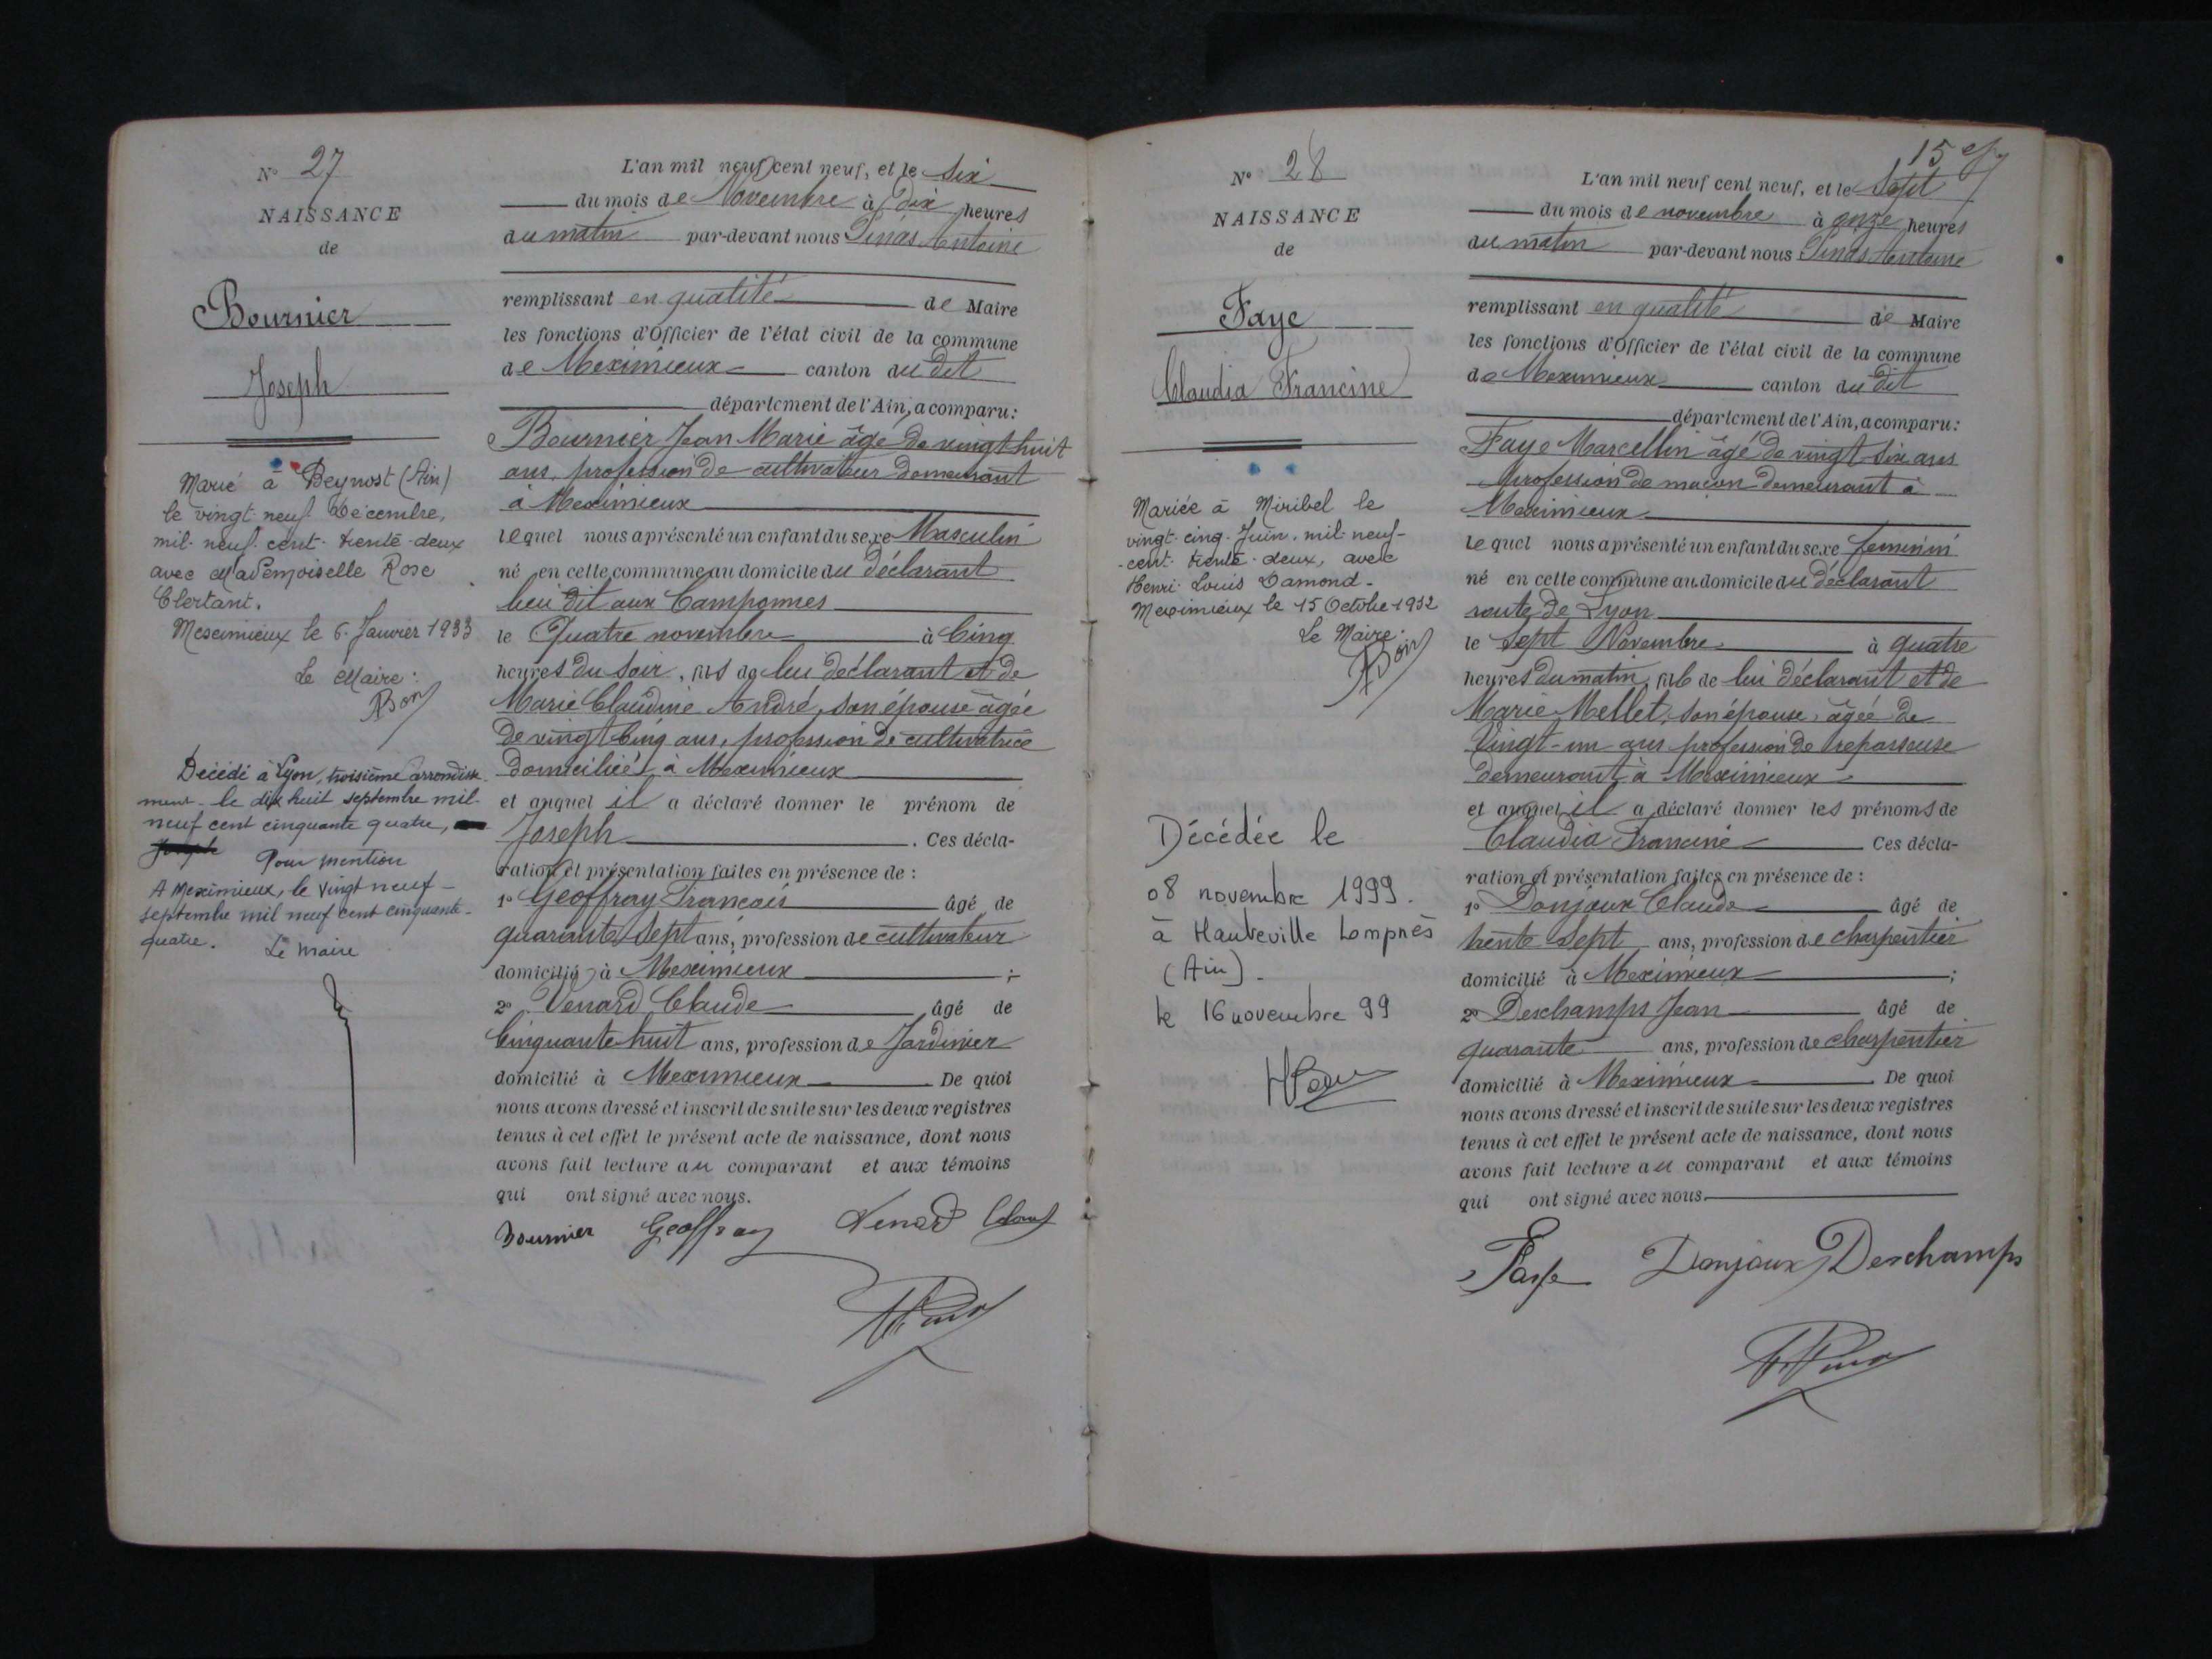 N° 27
NAISSANCE
de
Bournier
Joseph
Marié à Beynost (Ain)
le vingt-neuf Décembre,
mil-neuf-cent-trente-deux
avec Mademoiselle Rose
Clertant.
Meximieux le 6 Janvier 1933
Le Maire:
Décédé à Lyon, troisième arrondisse-
ment le dix huit septembre mil-
neuf cent cinquante quatre,
Pour mention
A Meximieux, le vingt neuf-
septembre mil neuf cent cinquante-
quatre.
Le Maire
L'an mil neuf cent neuf, et le Six
du mois de Novembre à Dix heures
du matin par-devant nous Pinas Antoine
remplissant en qualité de Maire
les fonctions d'Officier de l'état civil de la commune
de Meximieux canton du dit
département de l'Ain, a comparu:
Bournier Jean Marie âgé de vingt huit
ans, profession de cultivateur demeurant
à Meximieux
lequel nous a présenté un enfant du sexe Masculin
né en cette commune au domicile du déclarant
lieu dit aux Camponnes
le Quatre novembre à Cinq
heures du soir, fils de lui déclarant et de
Marie Claudine André, son épouse âgée
de vingt cinq ans, profession de cultivatrice
domiciliés à Meximieux
et auquel il a déclaré donner le prénom de
Joseph. Ces décla-
ration et présentation faites en présence de :
1° Geoffray François âgé de
quarante sept ans, profession de cultivateur
domicilié à Meximieux ;
2° Venard Claude âgé de
Cinquante huit ans, profession de Jardinier
domicilié à Meximieux De quoi
nous avons dressé et inscrit de suite sur les deux registres
tenus à cet effet le présent acte de naissance, dont nous
avons fait lecture au comparant et aux témoins
qui ont signé avec nous.
Bournier Geoffray Venard
15
N° 28
NAISSANCE
de
Faye
Claudia Francine
Mariée à Miribel le
vingt-cinq-Juin, mil-neuf-
-cent-trente-deux, avec
Henri Louis Damond-
Meximieux le 15 Octobre 1932
Le Maire:
Décédée le
08 novembre 1999.
à Hauteville Lompnès
(Ain).
le 16 novembre 99
L'an mil neuf cent neuf, et le Sept
du mois de novembre à onze heures
du matin par-devant nous Pinas Antoine
remplissant en qualité de Maire
les fonctions d'Officier de l'état civil de la commune
de Meximieux canton du dit
département de l'Ain, a comparu:
Faye Marcellin âgé de vingt six ans
profession de maçon demeurant à
Meximieux
lequel nous a présenté un enfant du sexe feminin
né en cette commune au domicile du déclarant
route de Lyon
le Sept Novembre à quatre
heures du matin, fille de lui déclarant et de
Marie Mellet, son épouse, âgée de
Vingt-un ans profession de repasseuse
demeurant à Meximieux
et auquel il a déclaré donner les prénoms de
Claudia Francine Ces décla-
ration et présentation faites en présence de :
1° Donjoux Claude âgé de
trente Sept ans, profession de charpentier
domicilié à Meximieux ;
2° Deschamps Jean âgé de
quarante ans, profession de charpentier
domicilié à Meximieux. De quoi
nous avons dressé et inscrit de suite sur les deux registres
tenus à cet effet le présent acte de naissance, dont nous
avons fait lecture au comparant et aux témoins
qui ont signé avec nous.
Faye Donjoux Deschamps